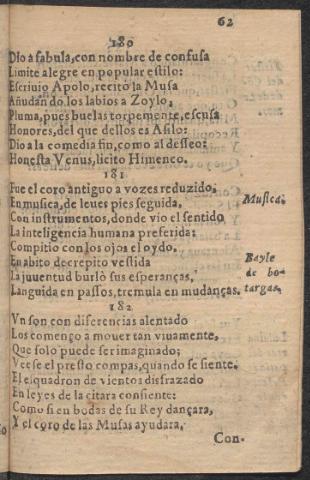 62
180
Dio à fabula, con nombre de confusa
Limite alegre en popular estilo:
Escriuio Apolo, recitò la Musa
Añudando los labios a Zoylo,
Pluma, pues buelas torpemente, escusa
Honores, del que dellos es Asilo:
Dio a la comedia fin, como al desseo:
Honesta Venus, licito Himeneo.
181
Fue el coro antiguo a vozes reduzido,
En musica, de leues pies seguida,
Musica.
Con instrumentos, donde vio el sentido
La inteligencia humana preferida:
Compitio con los ojos el oydo.
En abito decrepito vestida
Bayle
La juuentud burlò sus esperanças,
de bo-
Languida en passos, tremula en mudanças.
targas.
182
Vn son con diferencias alentado
Los començo a mouer tan viuamente,
Que solo puede ser imaginado;
Veese el presto compas, quando se siente.
El esquadron de vientos disfrazado
En leyes de la citara consiente:
Como si en bodas de su Rey dançara,
Y el coro de las Musas ayudara,
Con-